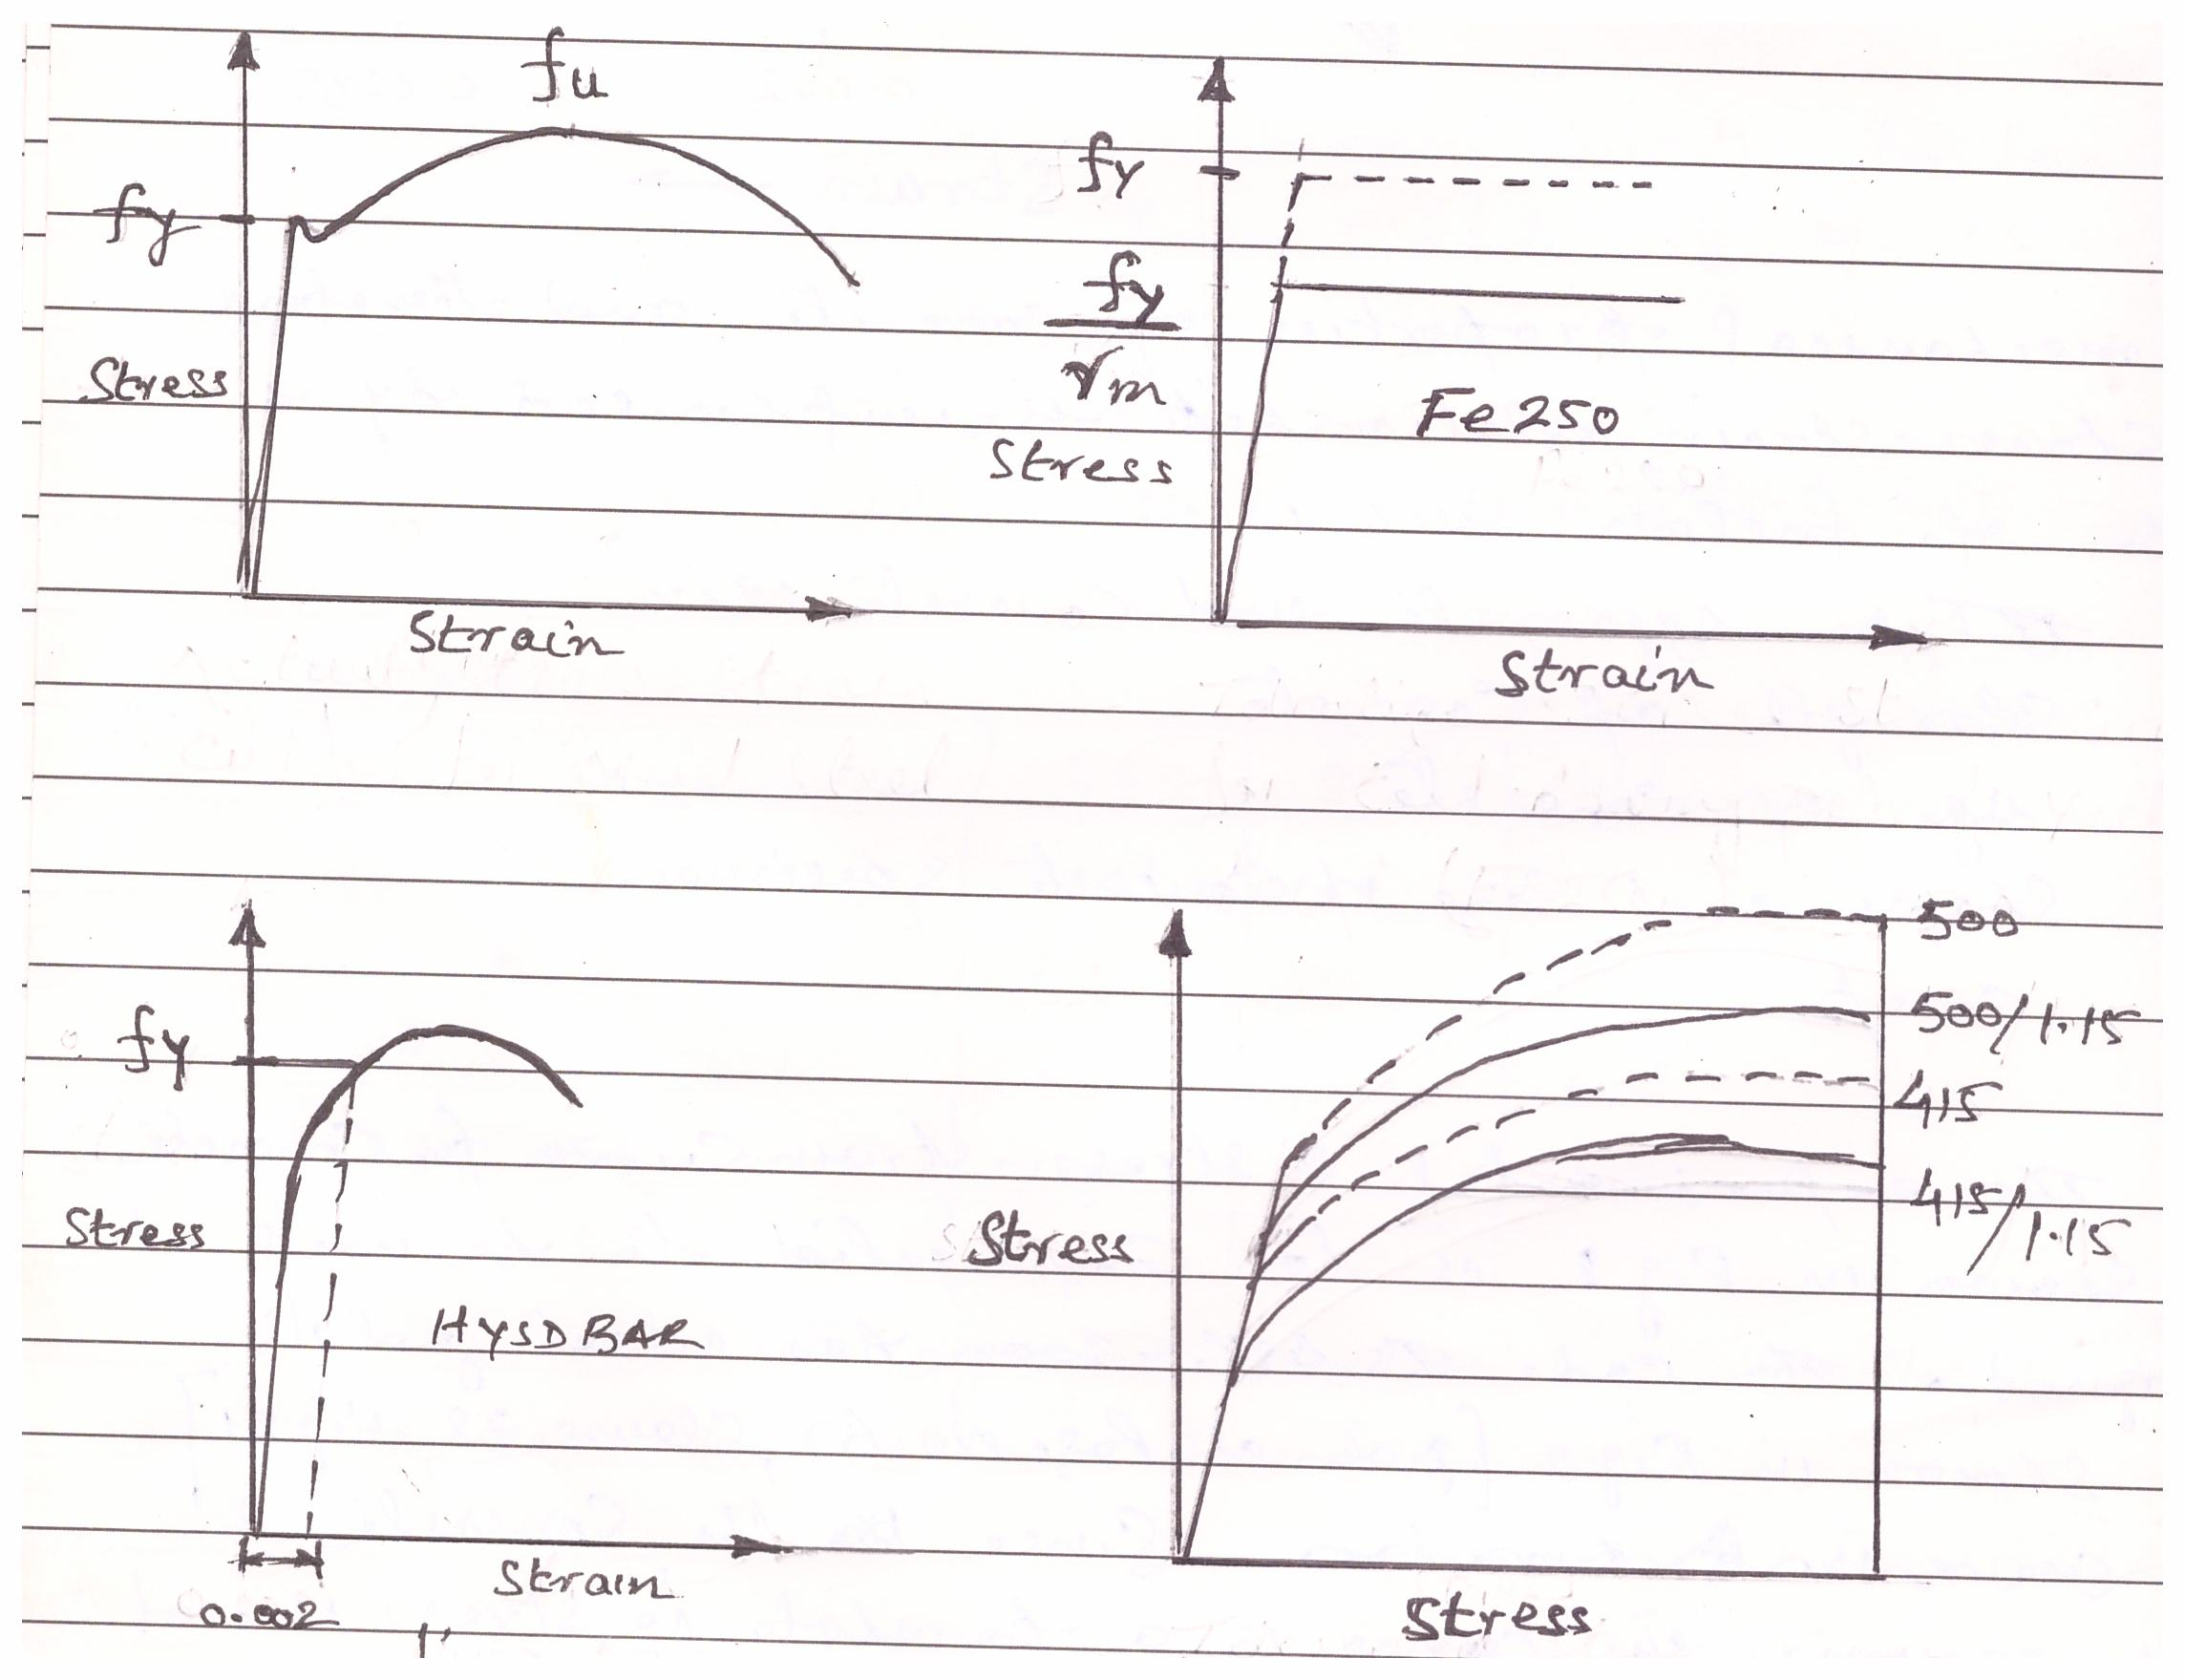 fu
fy
Stress
Strain
fy
fy
γm
Stress
Fe250
Strain
fy
Stress
HYSD BAR
Strain
0.002
500
500/1.15
415
415/1.15
Stress
Stress